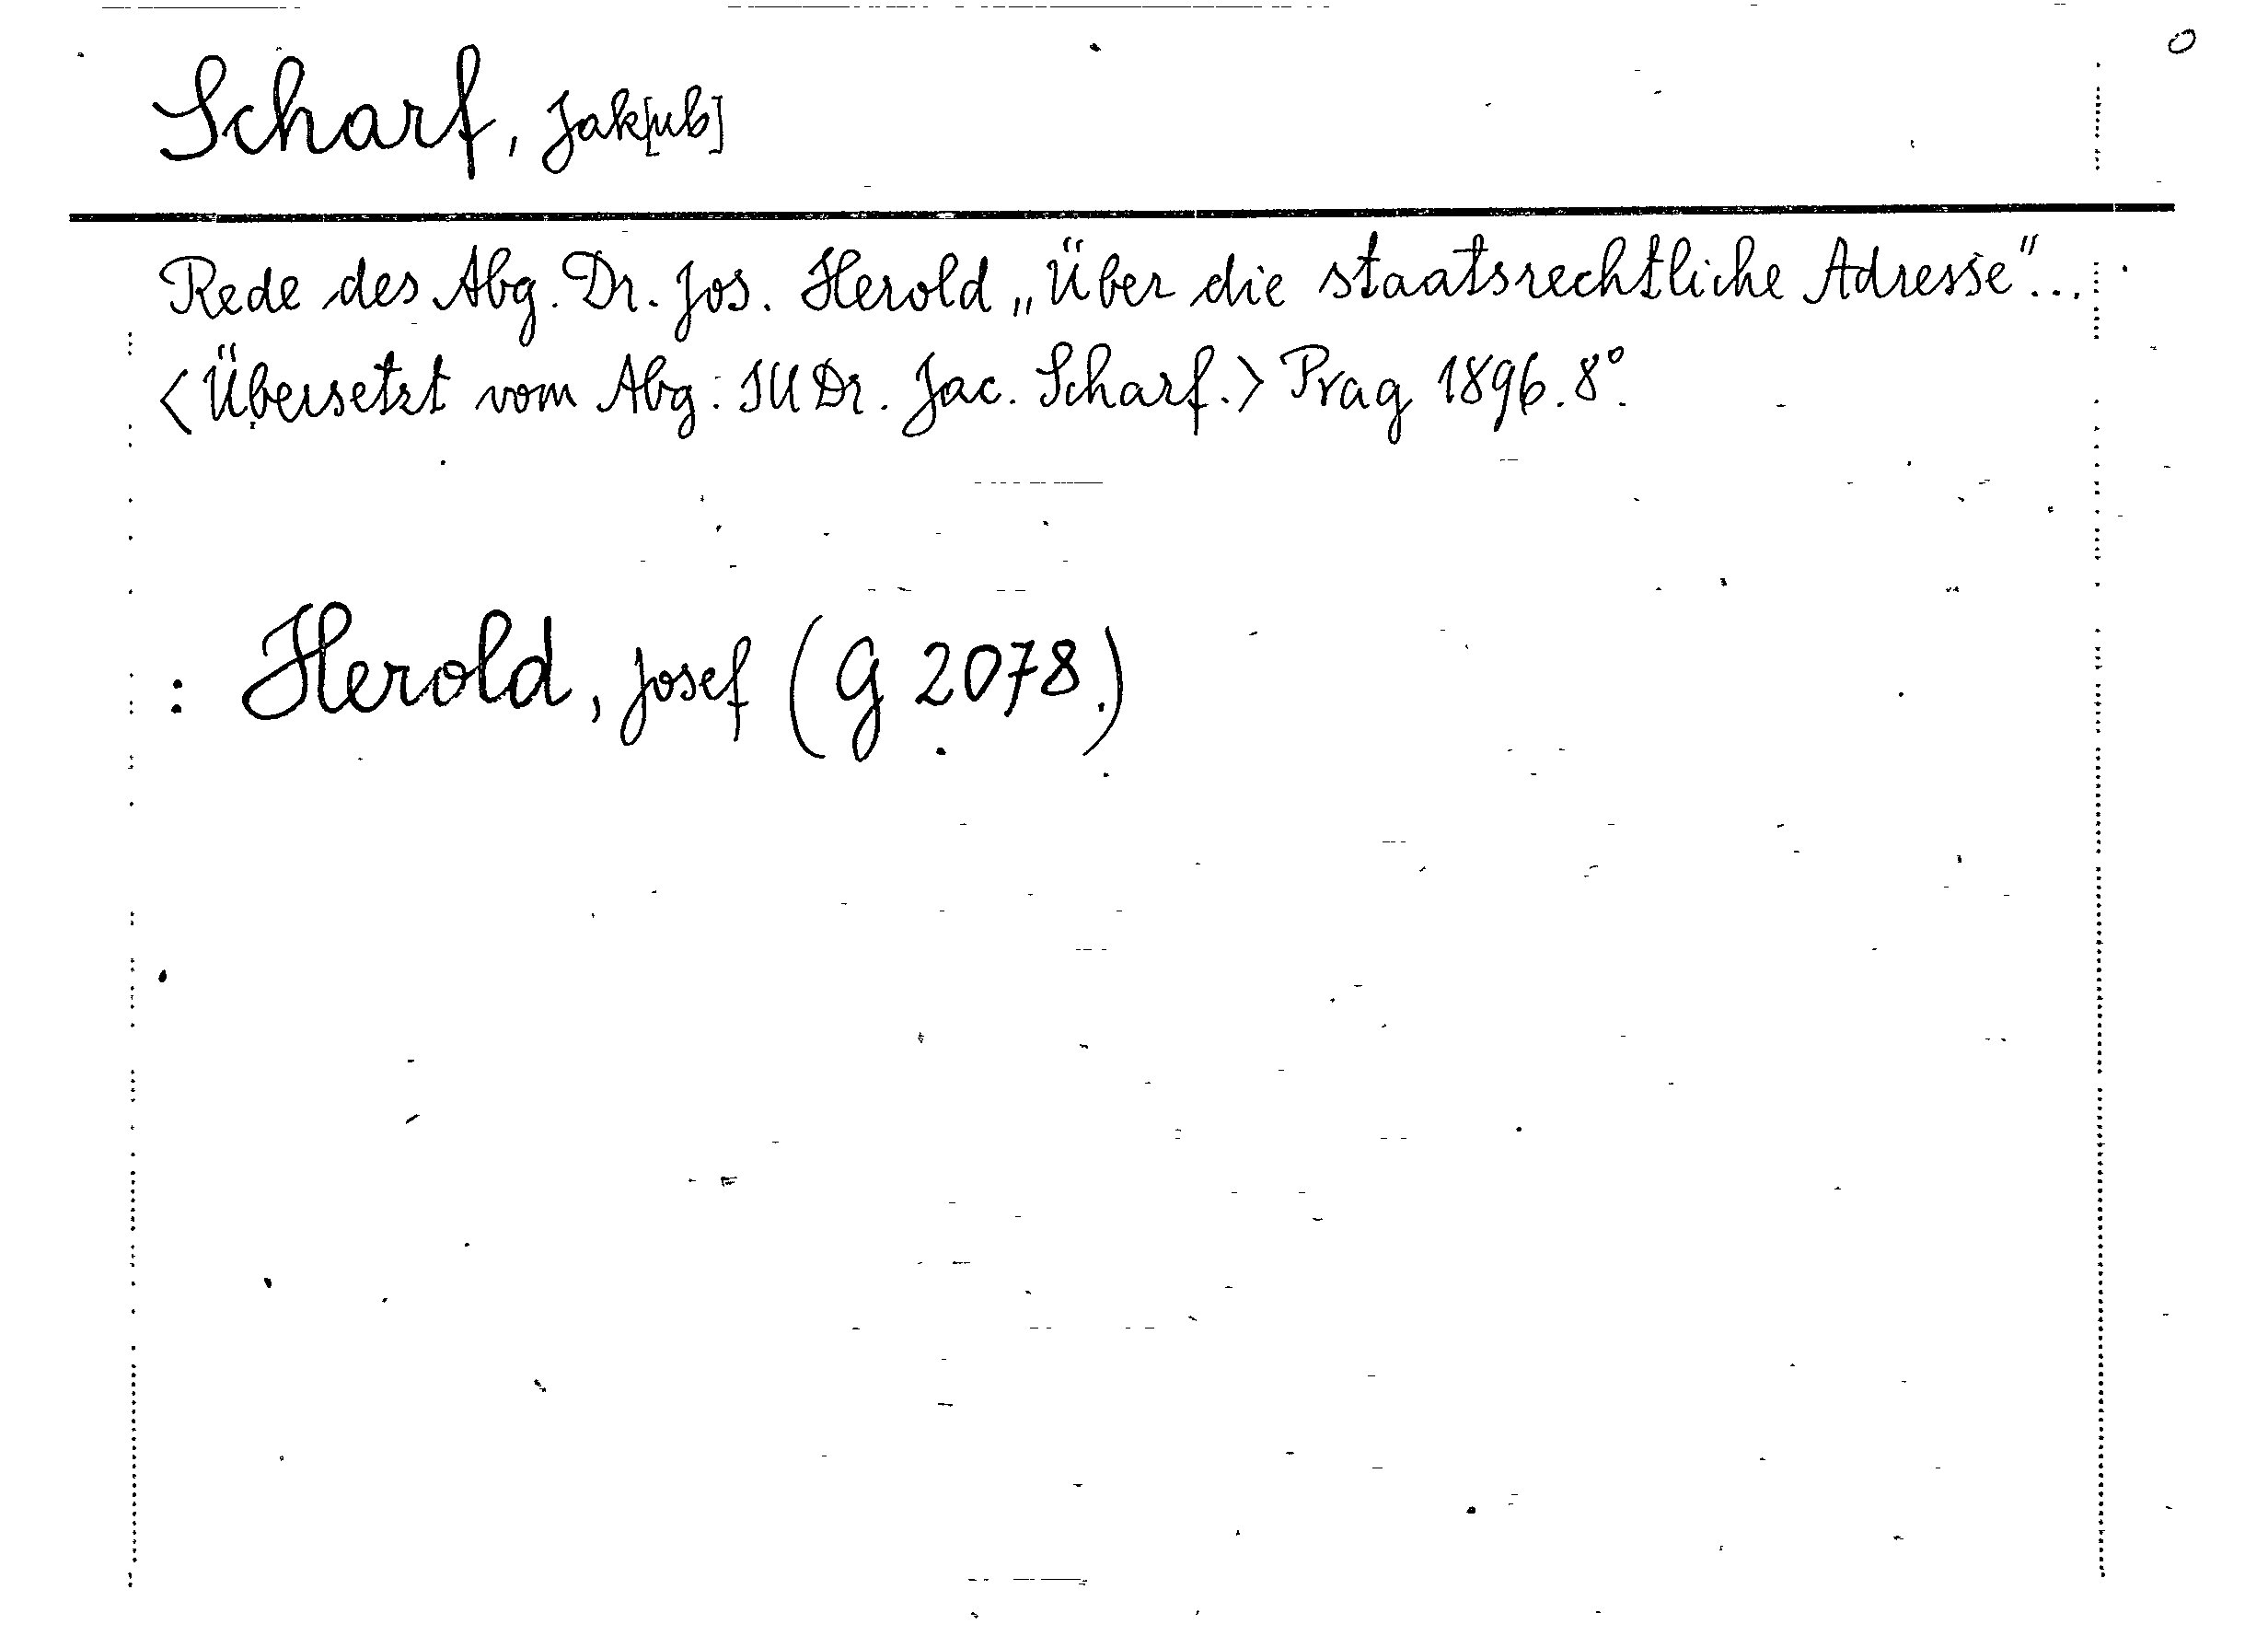 Scharf, Jak[ub]
Rede des Abg. Dr. Jos. Herold „Über die staatsrechtliche Adresse"...
<Übersetzt vom Abg: JUDr. Jac. Scharf.> Prag 1896. 8°.
: Herold, Josef (G 2078.)